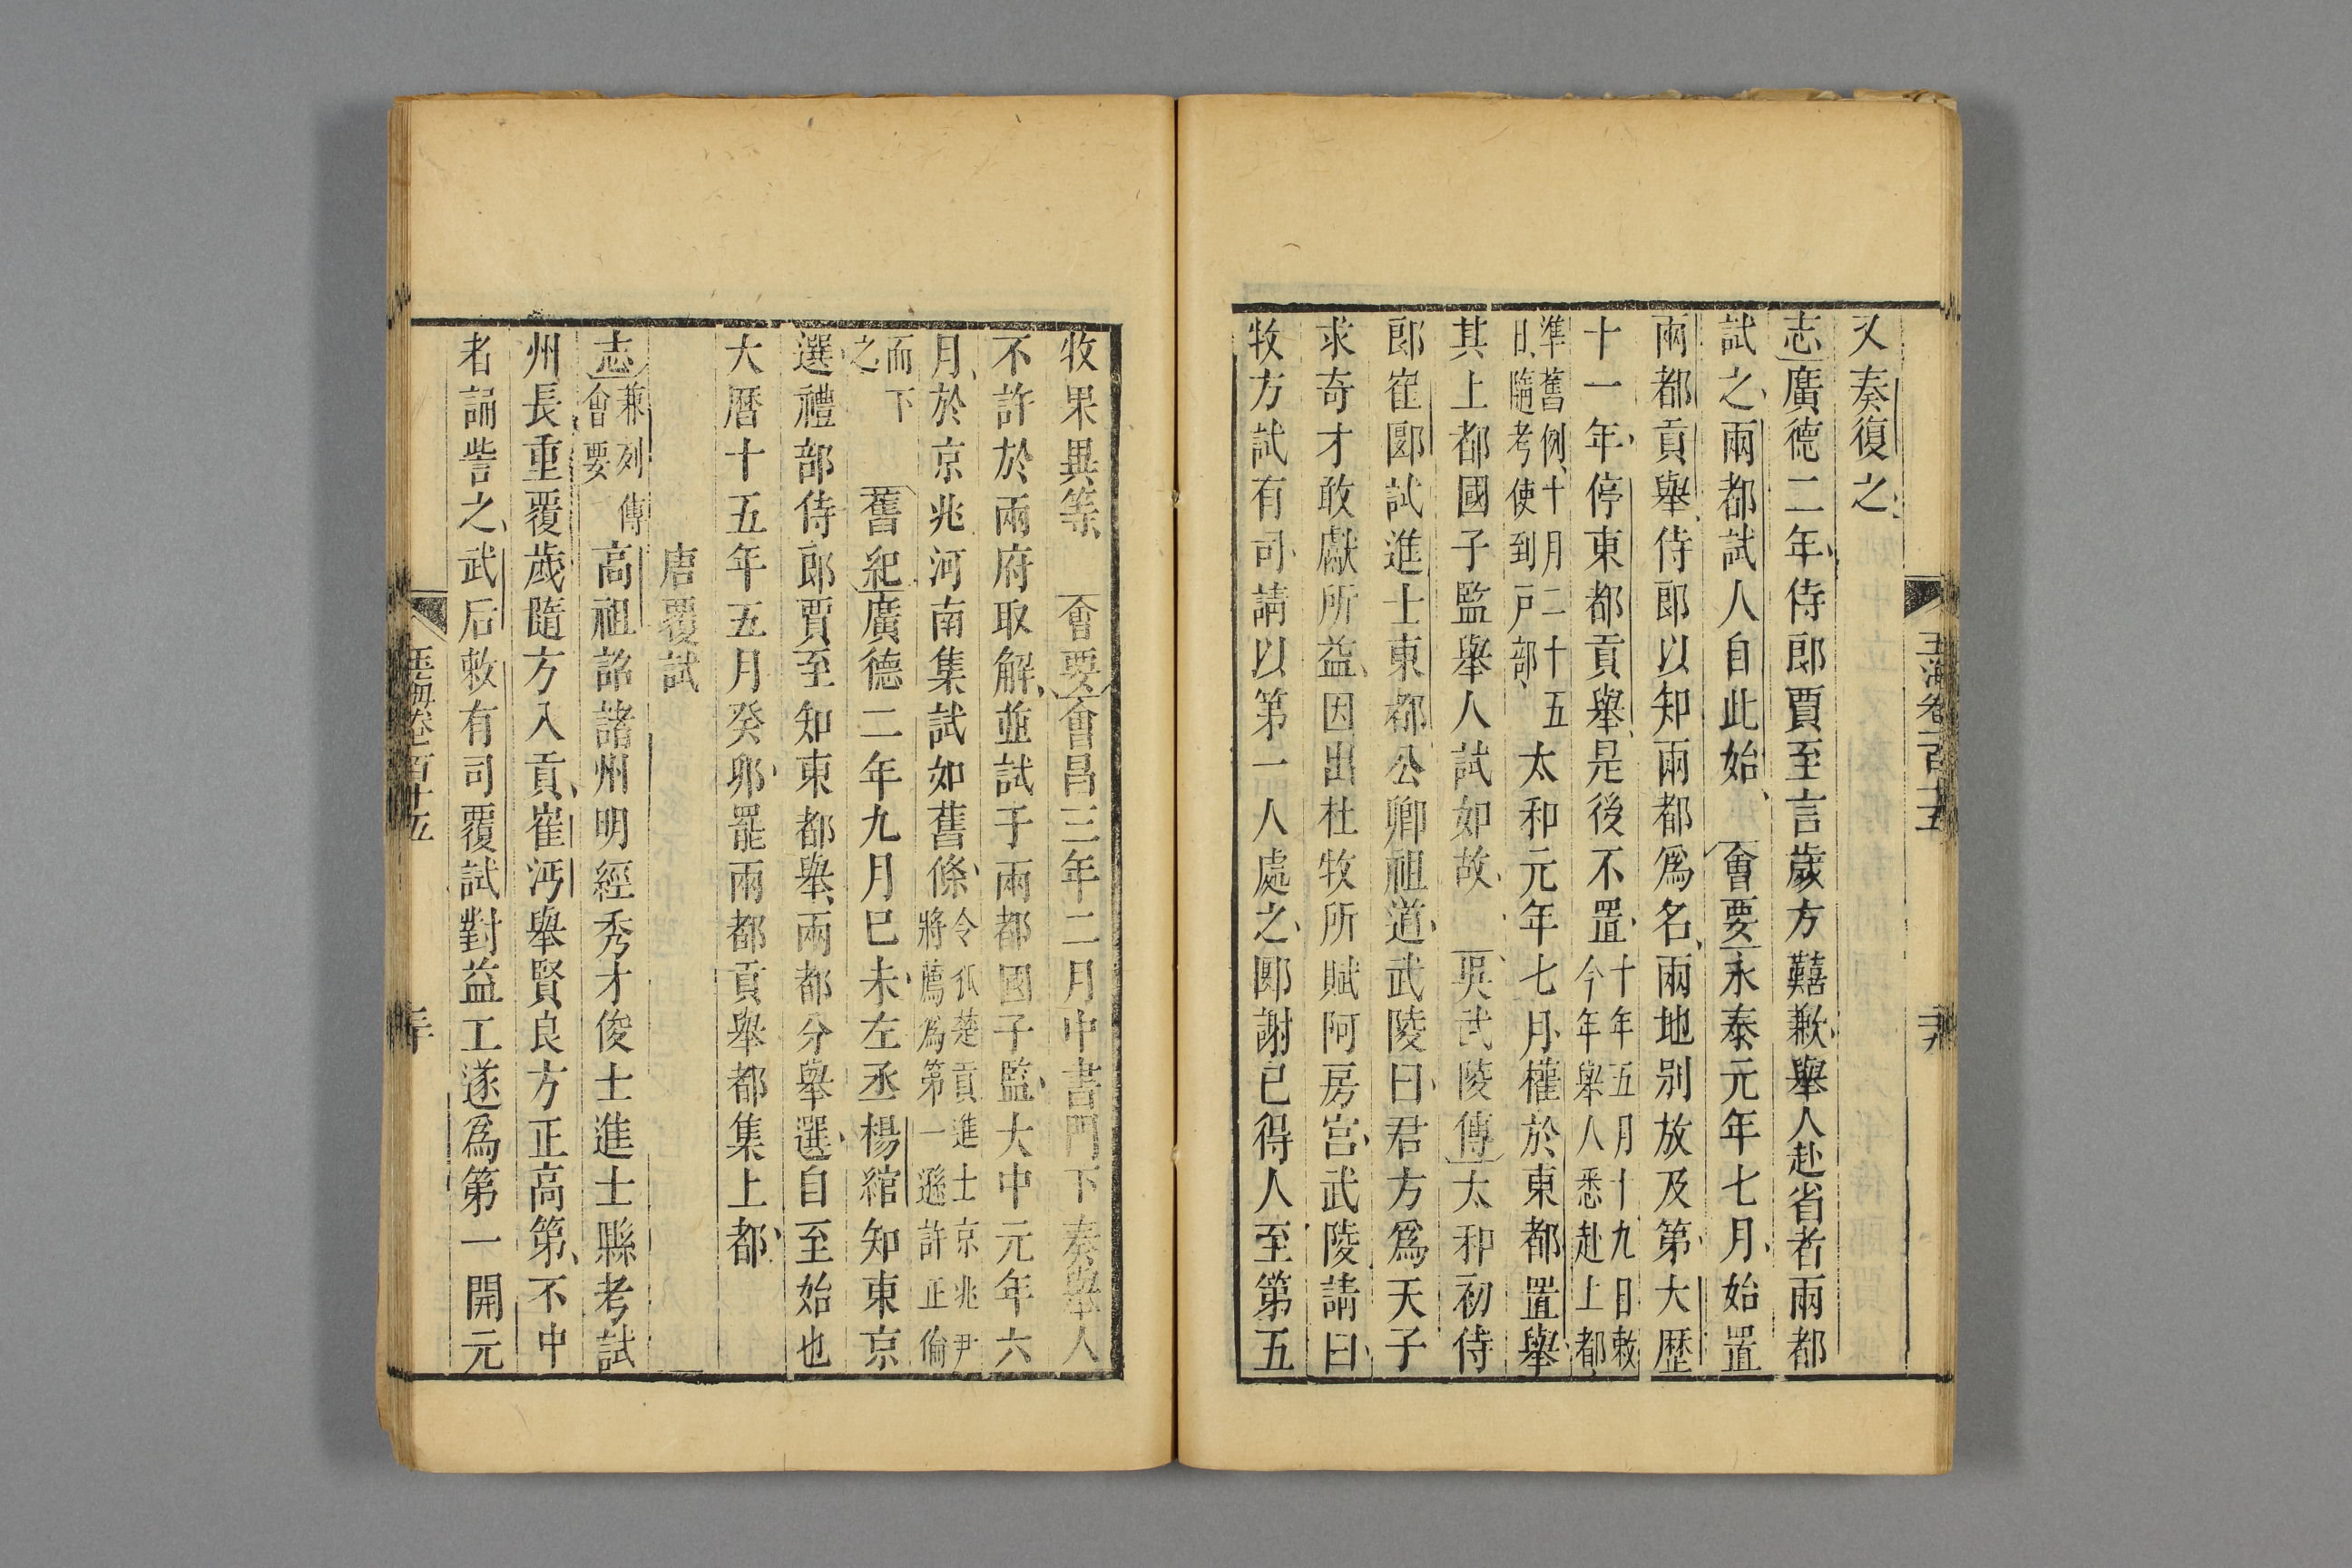 又奏復之
志廣德二年侍郎賈至言歲方囏歉舉人赴省者兩都
試之兩都試人自此始會要永泰元年七月始置
兩都貢舉侍郎以知兩都爲名兩地别放及第大歷
十一年停東都貢舉是後不置十年五月十九日敕今年舉人悉赴上都
準舊例十月二十五日隨考使到戸部太和元年七月權於東都置舉
其上都國子監舉人試如故吳武陵傳太和初侍
郎崔郾試進士東都公卿祖道武陵曰君方爲天子
求奇才敢獻所益因出杜牧所賦阿房宫武陵請曰
牧方試有司請以第一人處之郾謝已得人至第五
牧果異等會要會昌三年二月中書門下奏舉人
不許於兩府取解並試于兩都國子監大中元年六
月於京兆河南集試如舊條令狐楚貢進士京兆尹將薦爲第一遜許正倫
而下之舊紀廣德二年九月己未左丞楊綰知東京
選禮部侍郎賈至知東都舉兩都分舉選自至始也
大曆十五年五月癸卯罷兩都貢舉都集上都
唐覆試
志兼列傳會要高祖詔諸州明經秀才俊士進士縣考試
州長重覆歲隨方入貢崔沔舉賢良方正高第不中
者誦訾之武后敕有司覆試對益工遂爲第一開元
玉海卷一百十五
玉海卷一百十五
三十